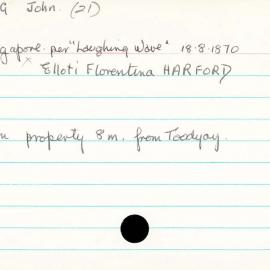 G John. (21)
gapore per "Laughing Wave" 18.8.1870
x Elloti Florentina HARFORD
n property 8 m. from Toodyay.